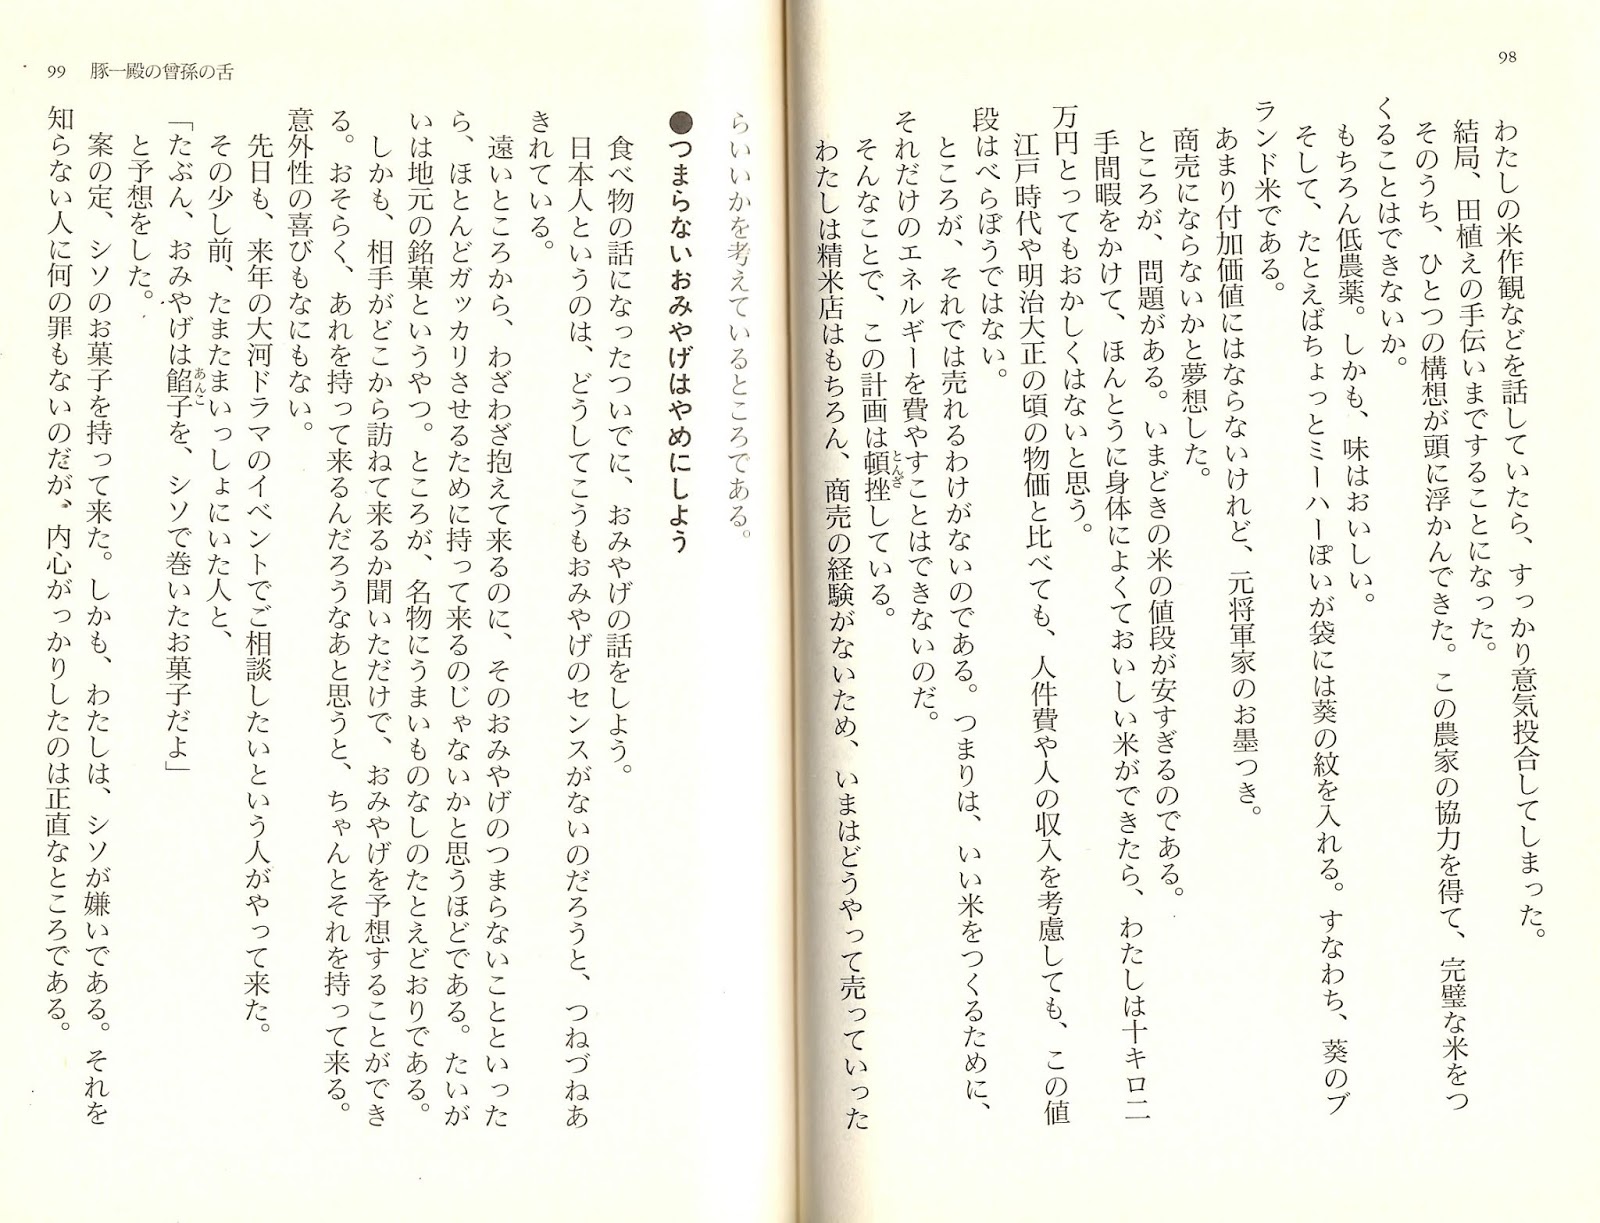 98
わたしの米作観などを話していたら、すっかり意気投合してしまった。
結局、田植えの手伝いまですることになった。
そのうち、ひとつの構想が頭に浮かんできた。この農家の協力を得て、完璧な米をつ
くることはできないか。
もちろん低農薬。しかも、味はおいしい。
そして、たとえばちょっとミーハーぽいが袋には葵の紋を入れる。すなわち、葵のブ
ランド米である。
あまり付加価値にはならないけれど、元将軍家のお墨つき。
商売にならないかと夢想した。
ところが、問題がある。いまどきの米の値段が安すぎるのである。
手間暇をかけて、ほんとうに身体によくておいしい米ができたら、わたしは十キロ二
万円とってもおかしくはないと思う。
江戸時代や明治大正の頃の物価と比べても、人件費や人の収入を考慮しても、この値
段はべらぼうではない。
ところが、それでは売れるわけがないのである。つまりは、いい米をつくるために、
それだけのエネルギーを費やすことはできないのだ。
そんなことで、この計画は頓挫とんざしている。
わたしは精米店はもちろん、商売の経験がないため、いまはどうやって売っていった
99 豚一殿の曾孫の舌
らいいかを考えているところである。
●つまらないおみやげはやめにしよう
食べ物の話になったついでに、おみやげの話をしよう。
日本人というのは、どうしてこうもおみやげのセンスがないのだろうと、つねづねあ
きれている。
遠いところから、わざわざ抱えて来るのに、そのおみやげのつまらないことといった
ら、ほとんどガッカリさせるために持って来るのじゃないかと思うほどである。たいが
いは地元の銘菓というやつ。ところが、名物にうまいものなしのたとえどおりである。
しかも、相手がどこから訪ねて来るか聞いただけで、おみやげを予想することができ
る。おそらく、あれを持って来るんだろうなあと思うと、ちゃんとそれを持って来る。
意外性の喜びもなにもない。
先日も、来年の大河ドラマのイベントでご相談したいという人がやって来た。
その少し前、たまたまいっしょにいた人と、
「たぶん、おみやげは餡子あんこを、シソで巻いたお菓子だよ」
と予想をした。
案の定、シソのお菓子を持って来た。しかも、わたしは、シソが嫌いである。それを
知らない人に何の罪もないのだが、内心がっかりしたのは正直なところである。